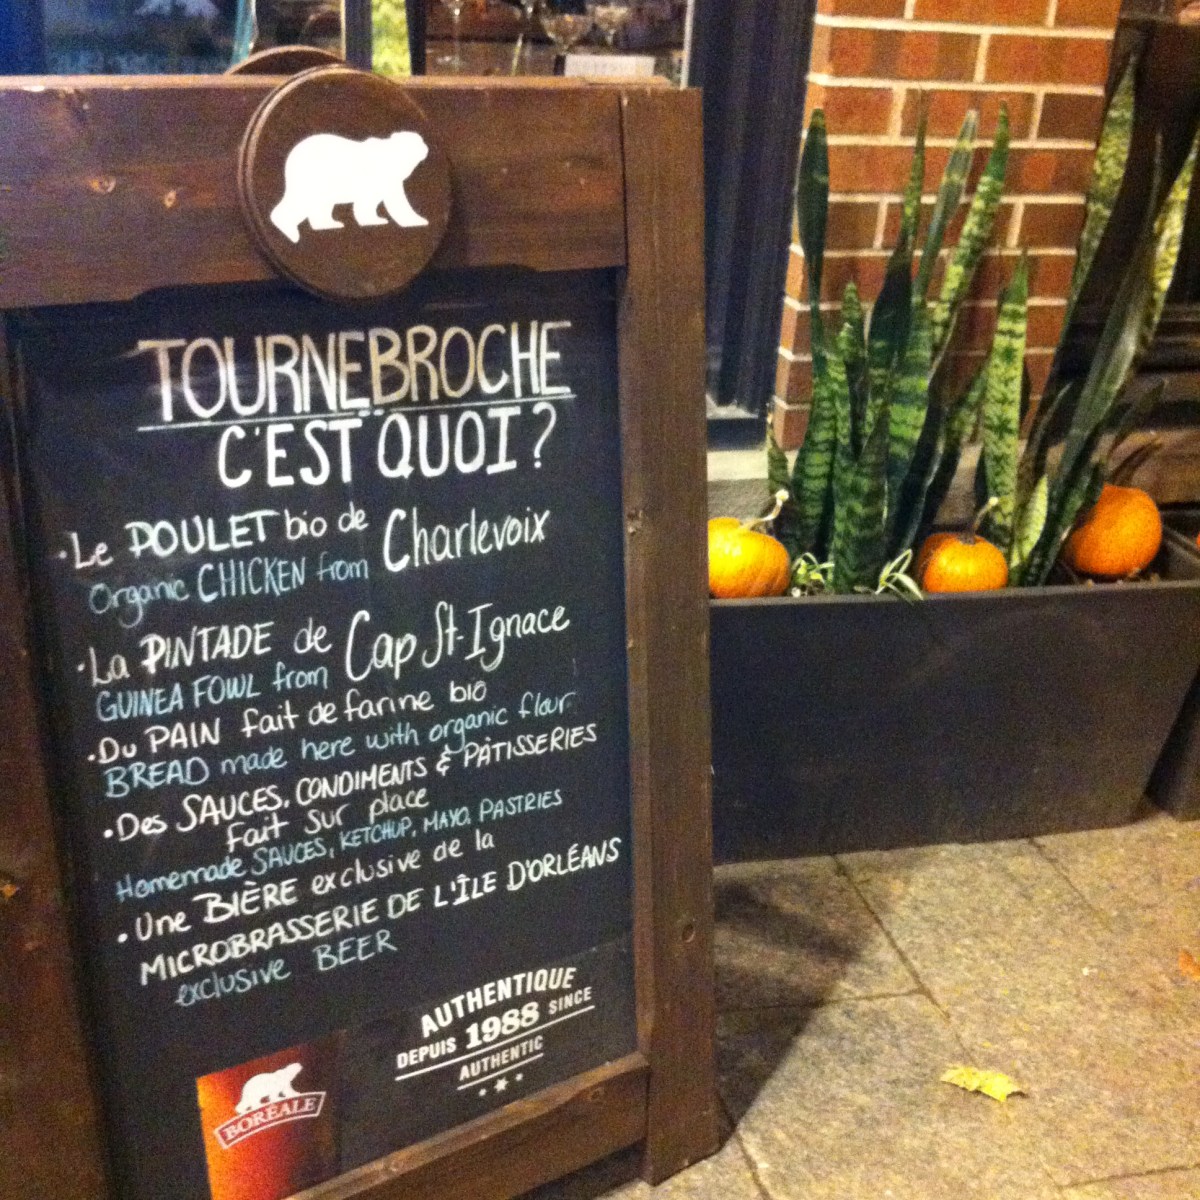 TOURNEBROCHE
C'EST QUOI?
• Le POULET bio de Charlevoix
Organic CHICKEN from
• La PINTADE de Cap St-Ignace
GUINEA FOWL from
• Du PAIN fait de farine bio
BREAD made here with organic flour
• Des SAUCES, CONDIMENTS & PÂTISSERIES
Fait sur place
Homemade SAUCES, KETCHUP, MAYO, PASTRIES
• Une BIÈRE exclusive de la
MICROBRASSERIE DE L'ÎLE D'ORLÉANS
exclusive BEER
AUTHENTIQUE
DEPUIS 1988 SINCE
AUTHENTIC
BORÉALE